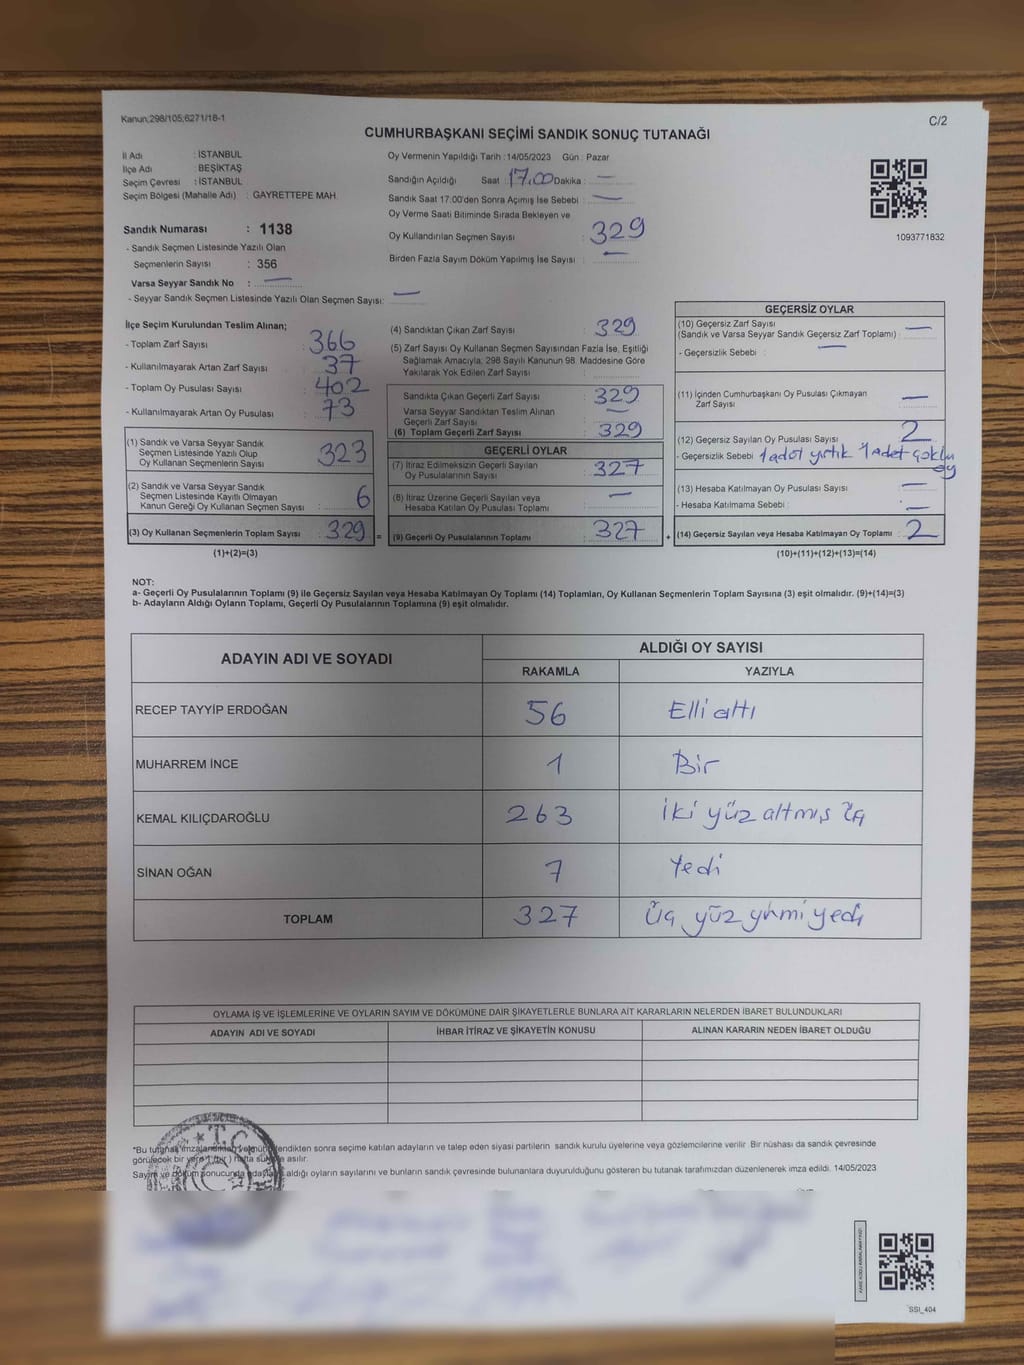 Kanun;298/105;6271/18-1
C/2
CUMHURBAŞKANI SEÇİMİ SANDIK SONUÇ TUTANAĞI
İl Adı : İSTANBUL
İlçe Adı : BEŞİKTAŞ
Seçim Çevresi : İSTANBUL
Seçim Bölgesi (Mahalle Adı) : GAYRETTEPE MAH
Sandık Numarası : 1138
- Sandık Seçmen Listesinde Yazılı Olan
Seçmenlerin Sayısı : 356
Varsa Seyyar Sandık No : —
- Seyyar Sandık Seçmen Listesinde Yazılı Olan Seçmen Sayısı: —
Oy Vermenin Yapıldığı Tarih : 14/05/2023 Gün : Pazar
Sandığın Açıldığı Saat : 17.00 Dakika : —
Sandık Saat 17.00'den Sonra Açımış İse Sebebi : —
Oy Verme Saati Bitiminde Sırada Bekleyen ve
Oy Kullandırılan Seçmen Sayısı : 329
Birden Fazla Sayım Döküm Yapılmış İse Sayısı : —
1093771832
İlçe Seçim Kurulundan Teslim Alınan;
- Toplam Zarf Sayısı : 366
- Kullanılmayarak Artan Zarf Sayısı : 37
- Toplam Oy Pusulası Sayısı : 402
- Kullanılmayarak Artan Oy Pusulası : 73
(1) Sandık ve Varsa Seyyar Sandık
Seçmen Listesinde Yazılı Olup
Oy Kullanan Seçmenlerin Sayısı : 323
(2) Sandık ve Varsa Seyyar Sandık
Seçmen Listesinde Kayıtlı Olmayan
Kanun Gereği Oy Kullanan Seçmen Sayısı : 6
(3) Oy Kullanan Seçmenlerin Toplam Sayısı : 329 =
(1)+(2)=(3)
(4) Sandıktan Çıkan Zarf Sayısı : 329
(5) Zarf Sayısı Oy Kullanan Seçmen Sayısından Fazla İse, Eşitliği
Sağlamak Amacıyla, 298 Sayılı Kanunun 98. Maddesine Göre
Yakılarak Yok Edilen Zarf Sayısı :
Sandıkta Çıkan Geçerli Zarf Sayısı : 329
Varsa Seyyar Sandıktan Teslim Alınan
Geçerli Zarf Sayısı : —
(6) Toplam Geçerli Zarf Sayısı : 329
GEÇERLİ OYLAR
(7) İtiraz Edilmeksizin Geçerli Sayılan
Oy Pusulalarının Sayısı : 327
(8) İtiraz Üzerine Geçerli Sayılan veya
Hesaba Katılan Oy Pusulası Toplamı : —
(9) Geçerli Oy Pusulalarının Toplamı : 327 +
GEÇERSİZ OYLAR
(10) Geçersiz Zarf Sayısı
(Sandık ve Varsa Seyyar Sandık Geçersiz Zarf Toplamı) : —
- Geçersizlik Sebebi : —
(11) İçinden Cumhurbaşkanı Oy Pusulası Çıkmayan
Zarf Sayısı : —
(12) Geçersiz Sayılan Oy Pusulası Sayısı : 2
- Geçersizlik Sebebi 1 adet yırtık 1 adet çoklu
oy
(13) Hesaba Katılmayan Oy Pusulası Sayısı : —
- Hesaba Katılmama Sebebi : —
(14) Geçersiz Sayılan veya Hesaba Katılmayan Oy Toplamı : 2
(10)+(11)+(12)+(13)=(14)
NOT:
a- Geçerli Oy Pusulalarının Toplamı (9) ile Geçersiz Sayılan veya Hesaba Katılmayan Oy Toplamı (14) Toplamları, Oy Kullanan Seçmenlerin Toplam Sayısına (3) eşit olmalıdır. (9)+(14)=(3)
b- Adayların Aldığı Oyların Toplamı, Geçerli Oy Pusulalarının Toplamına (9) eşit olmalıdır.
ADAYIN ADI VE SOYADI
ALDIĞI OY SAYISI
RAKAMLA YAZIYLA
RECEP TAYYİP ERDOĞAN 56 Elli altı
MUHARREM İNCE 1 Bir
KEMAL KILIÇDAROĞLU 263 iki yüz altmış üç
SİNAN OĞAN 7 Yedi
TOPLAM 327 Üç yüz yirmi yedi
OYLAMA İŞ VE İŞLEMLERİNE VE OYLARIN SAYIM VE DÖKÜMÜNE DAİR ŞİKAYETLERLE BUNLARA AİT KARARLARIN NELERDEN İBARET BULUNDUKLARI
ADAYIN ADI VE SOYADI İHBAR İTİRAZ VE ŞİKAYETİN KONUSU ALINAN KARARIN NEDEN İBARET OLDUĞU
T.C.
*Bu tutanak imzalandıktan ve mühürlendikten sonra seçime katılan adayların ve talep eden siyasi partilerin sandık kurulu üyelerine veya gözlemcilerine verilir. Bir nüshası da sandık çevresinde
görülecek bir yere 1 (bir) hafta süreyle asılır.
Sayım ve döküm sonucunda adayların aldığı oyların sayılarını ve bunların sandık çevresinde bulunanlara duyurulduğunu gösteren bu tutanak tarafımızdan düzenlenerek imza edildi. 14/05/2023
SSI_404